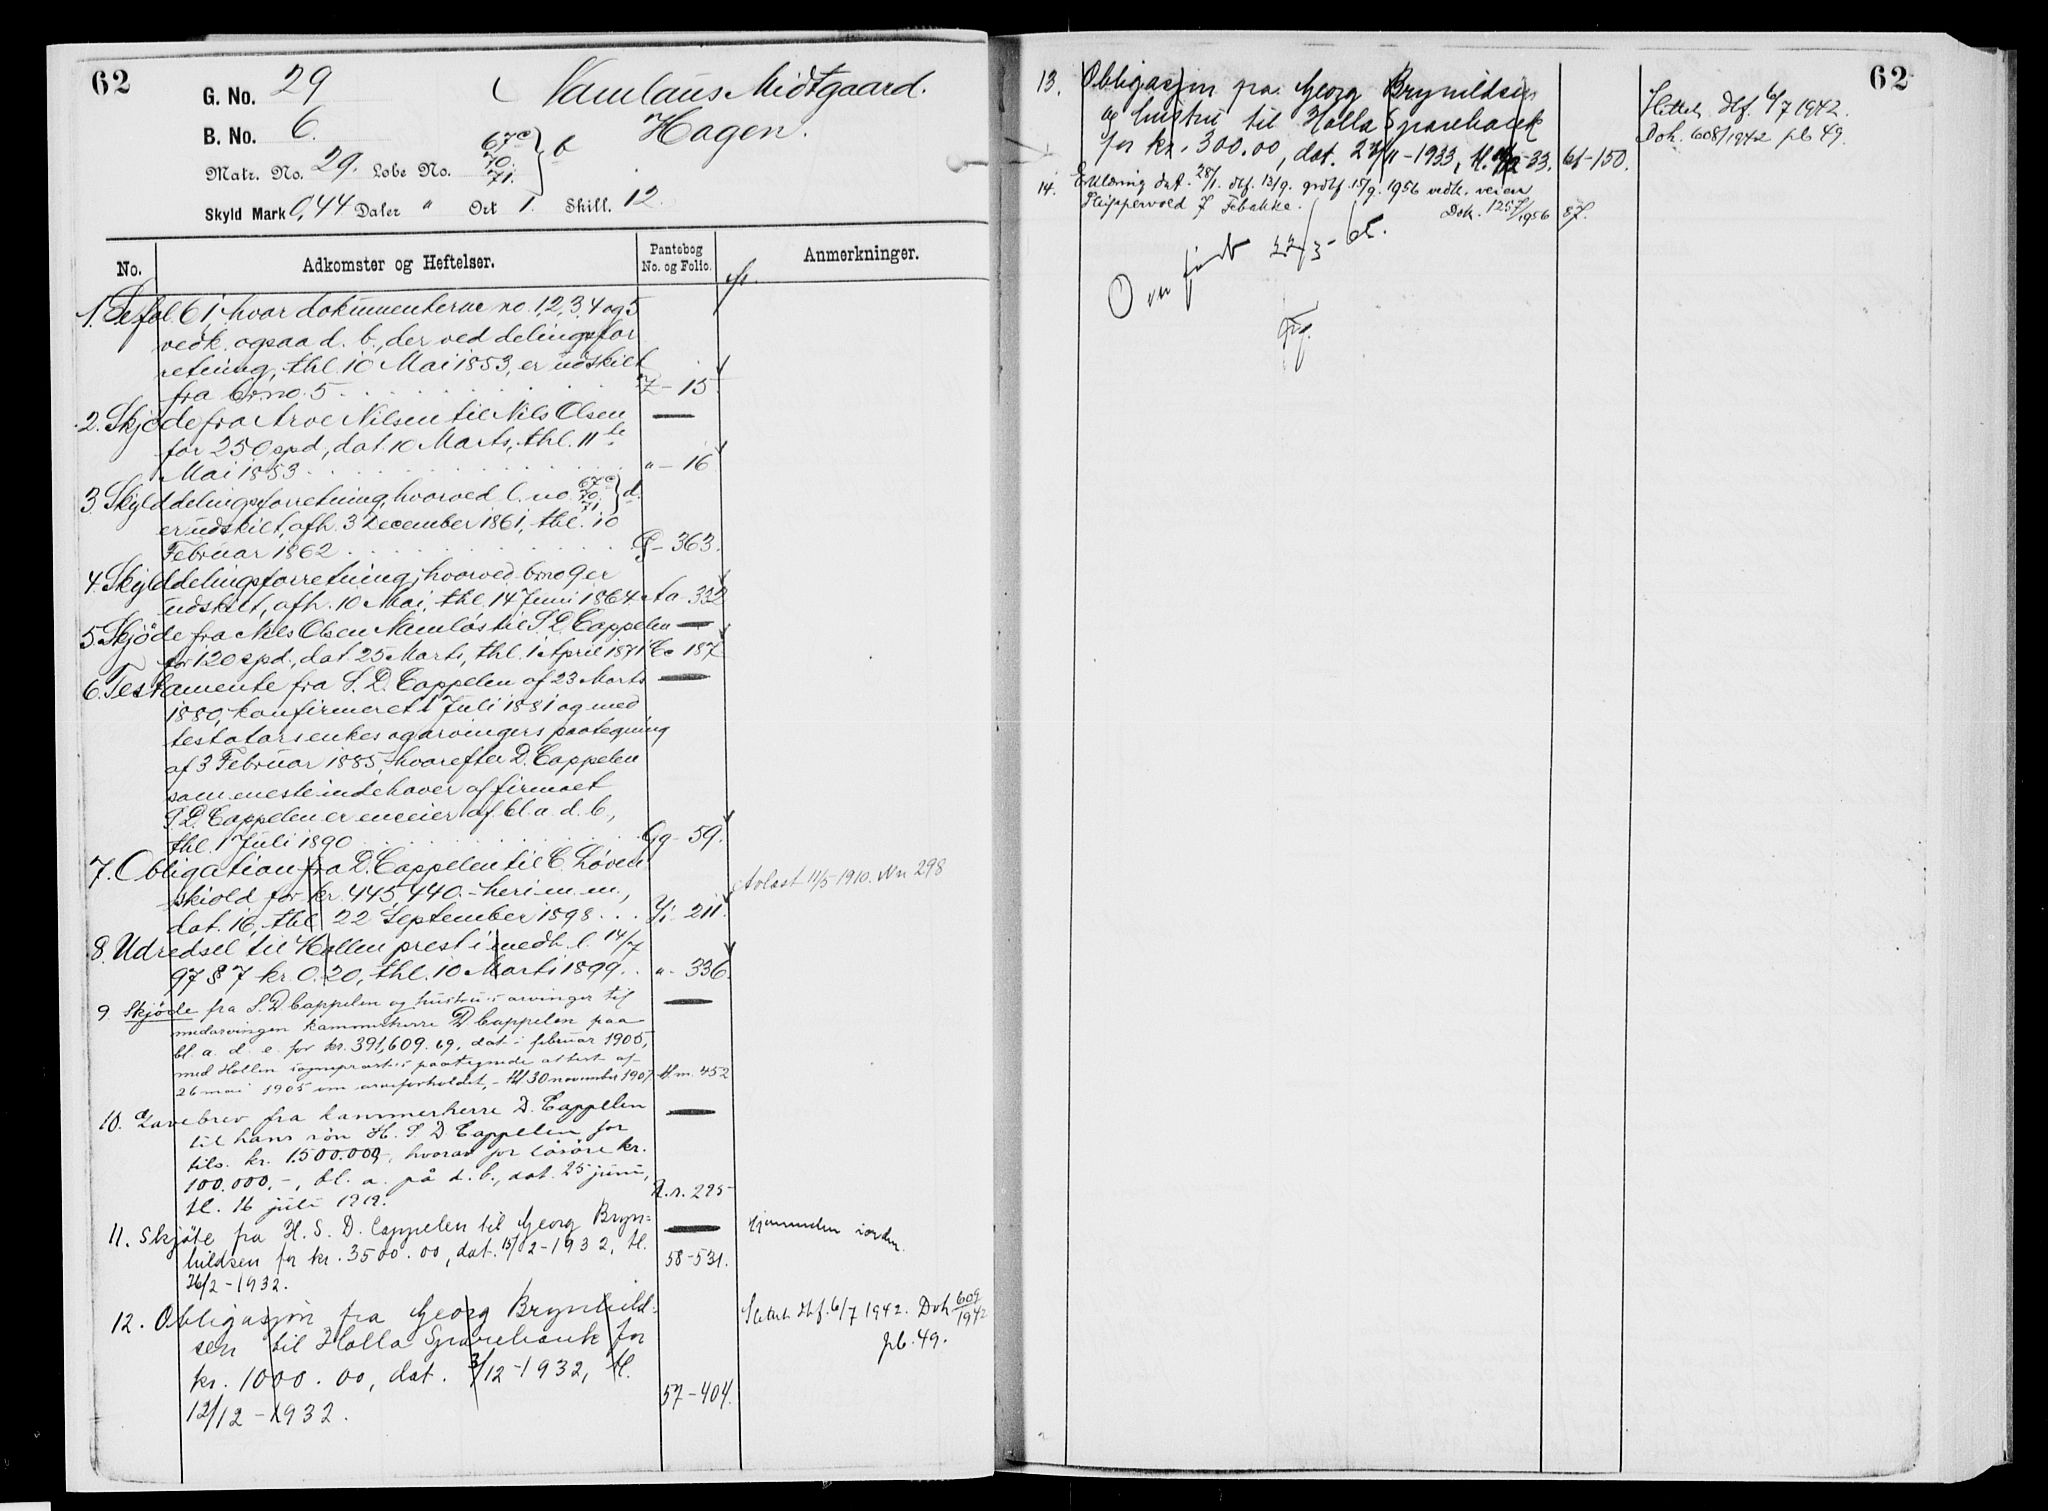 62
G. No. 29
Namlaus Midtgaard.
B. No. 6.
Hagen.
Matr. No. 29. Løbe No. 67c 70. 71. } b
Skyld Mark 0,44 Daler " Ort 1. Skill. 12.
No.
Adkomster og Heftelser.
Pantebog
No. og Folio.
Anmerkninger.
1. Se fol. 61, hvor dokumenterne no. 1, 2, 3, 4 og 5
vedk. ogsaa d. b., der ved delingsfor
retning, thl. 10 Mai 1853, er udskilt
fra br. no. 5 . . . 7 - 15
2. Skjøde fra Aroe Nilsen til Nils Olsen
for 250 spd, dat. 10 Marts, thl. 11te
Mai 1853 . . . " - 16
3. Skylddelingsforretning, hvorved l. no. 67c 70. 71. } d.
er udskilt, afh. 3 December 1861, thl. 10
Februar 1862 . . . - 363.
4. Skylddelingsforretning, hvorved br. no 9 er
udskilt, afh. 10 Mai, thl. 14 Juni 1864. Aa - 332
5. Skjøde fra Nils Olsen Namløs til S. D. Cappelen
for 120 spd., dat. 25 Marts, thl. 1 April 1871 Cc 187
6. Testamente fra S. D. Cappelen af 23 Marts
1880, konfirmeret 1 Juli 1881 og med
testators enkes og arvingers paategning
af 3 Februar 1885, hvorefter D. Cappelen
som eneste indehaver af firmaet
S. D. Cappelen er eneeier af bl. a. d. b.,
thl. 1 Juli 1890 . . . Gg - 59.
7. Obligation fra D. Cappelen til C. Løven
skiold for kr 445,440.- heri m. m.,
dat. 16, thl. 22 September 1898 . . . Ii - 211.
Avlast 11/5 1910. Nr 298
8. Udredsel til Hollen prest i medh. l. 14/7
97 § 7 kr. 0.20, thl. 10 Marts 1899. . " - 336.
9. Skjøde fra S. D. Cappelen og hustrus arvinger til
medarvingen kammerherre D. Cappelen paa
bl. a. d. e. for kr. 391,609.69, dat. i februar 1905,
med Hollen sogneprests paategnede attest af
26 mai 1905 om arveforholdet, - thl 30 november 1907 M.m. 452
10. Gavebrev fra kammerherre D. Cappelen
til hans søn H. S. D Cappelen for
tils. kr. 1.500.000,-, hvorav for løsøre kr.
100.000.-, bl. a. på d. b., dat. 25 juni,
tl. 16 juli 1919. R.r. 225
11. Skjøte fra H. S. D. Cappelen til Georg Bryn=
hildsen for kr. 3500.00, dat. 15/2 - 1932, tl.
26/2 - 1932. 58 - 531.
Hjemmelen iorden.
12. Obligasjon fra Georg Brynhild-
sen til Holla Sparebank for
kr. 1000.00, dat. 3/12 - 1932, tl.
12/12 - 1932. 57 - 404.
Slettet dbf. 6/7 1942. Dok. 609/1942
pb. 49.
62
13. Obligasjon fra Georg Brynildsen
og hustru til Holla Sparebank
for kr. 300.00, dat. 27/11 - 1933, tl. - 33. 61 - 150.
Slettet dbf. 6/7 1942.
Dok. 608/1942 pb 49.
14. Erklæring dat. 28/1. dbf. 13/9. grdbf. 15/9. 1956 vedk. veien
Skippervold Dok. 1257/1956 87.
Overført 22/3 - 65.